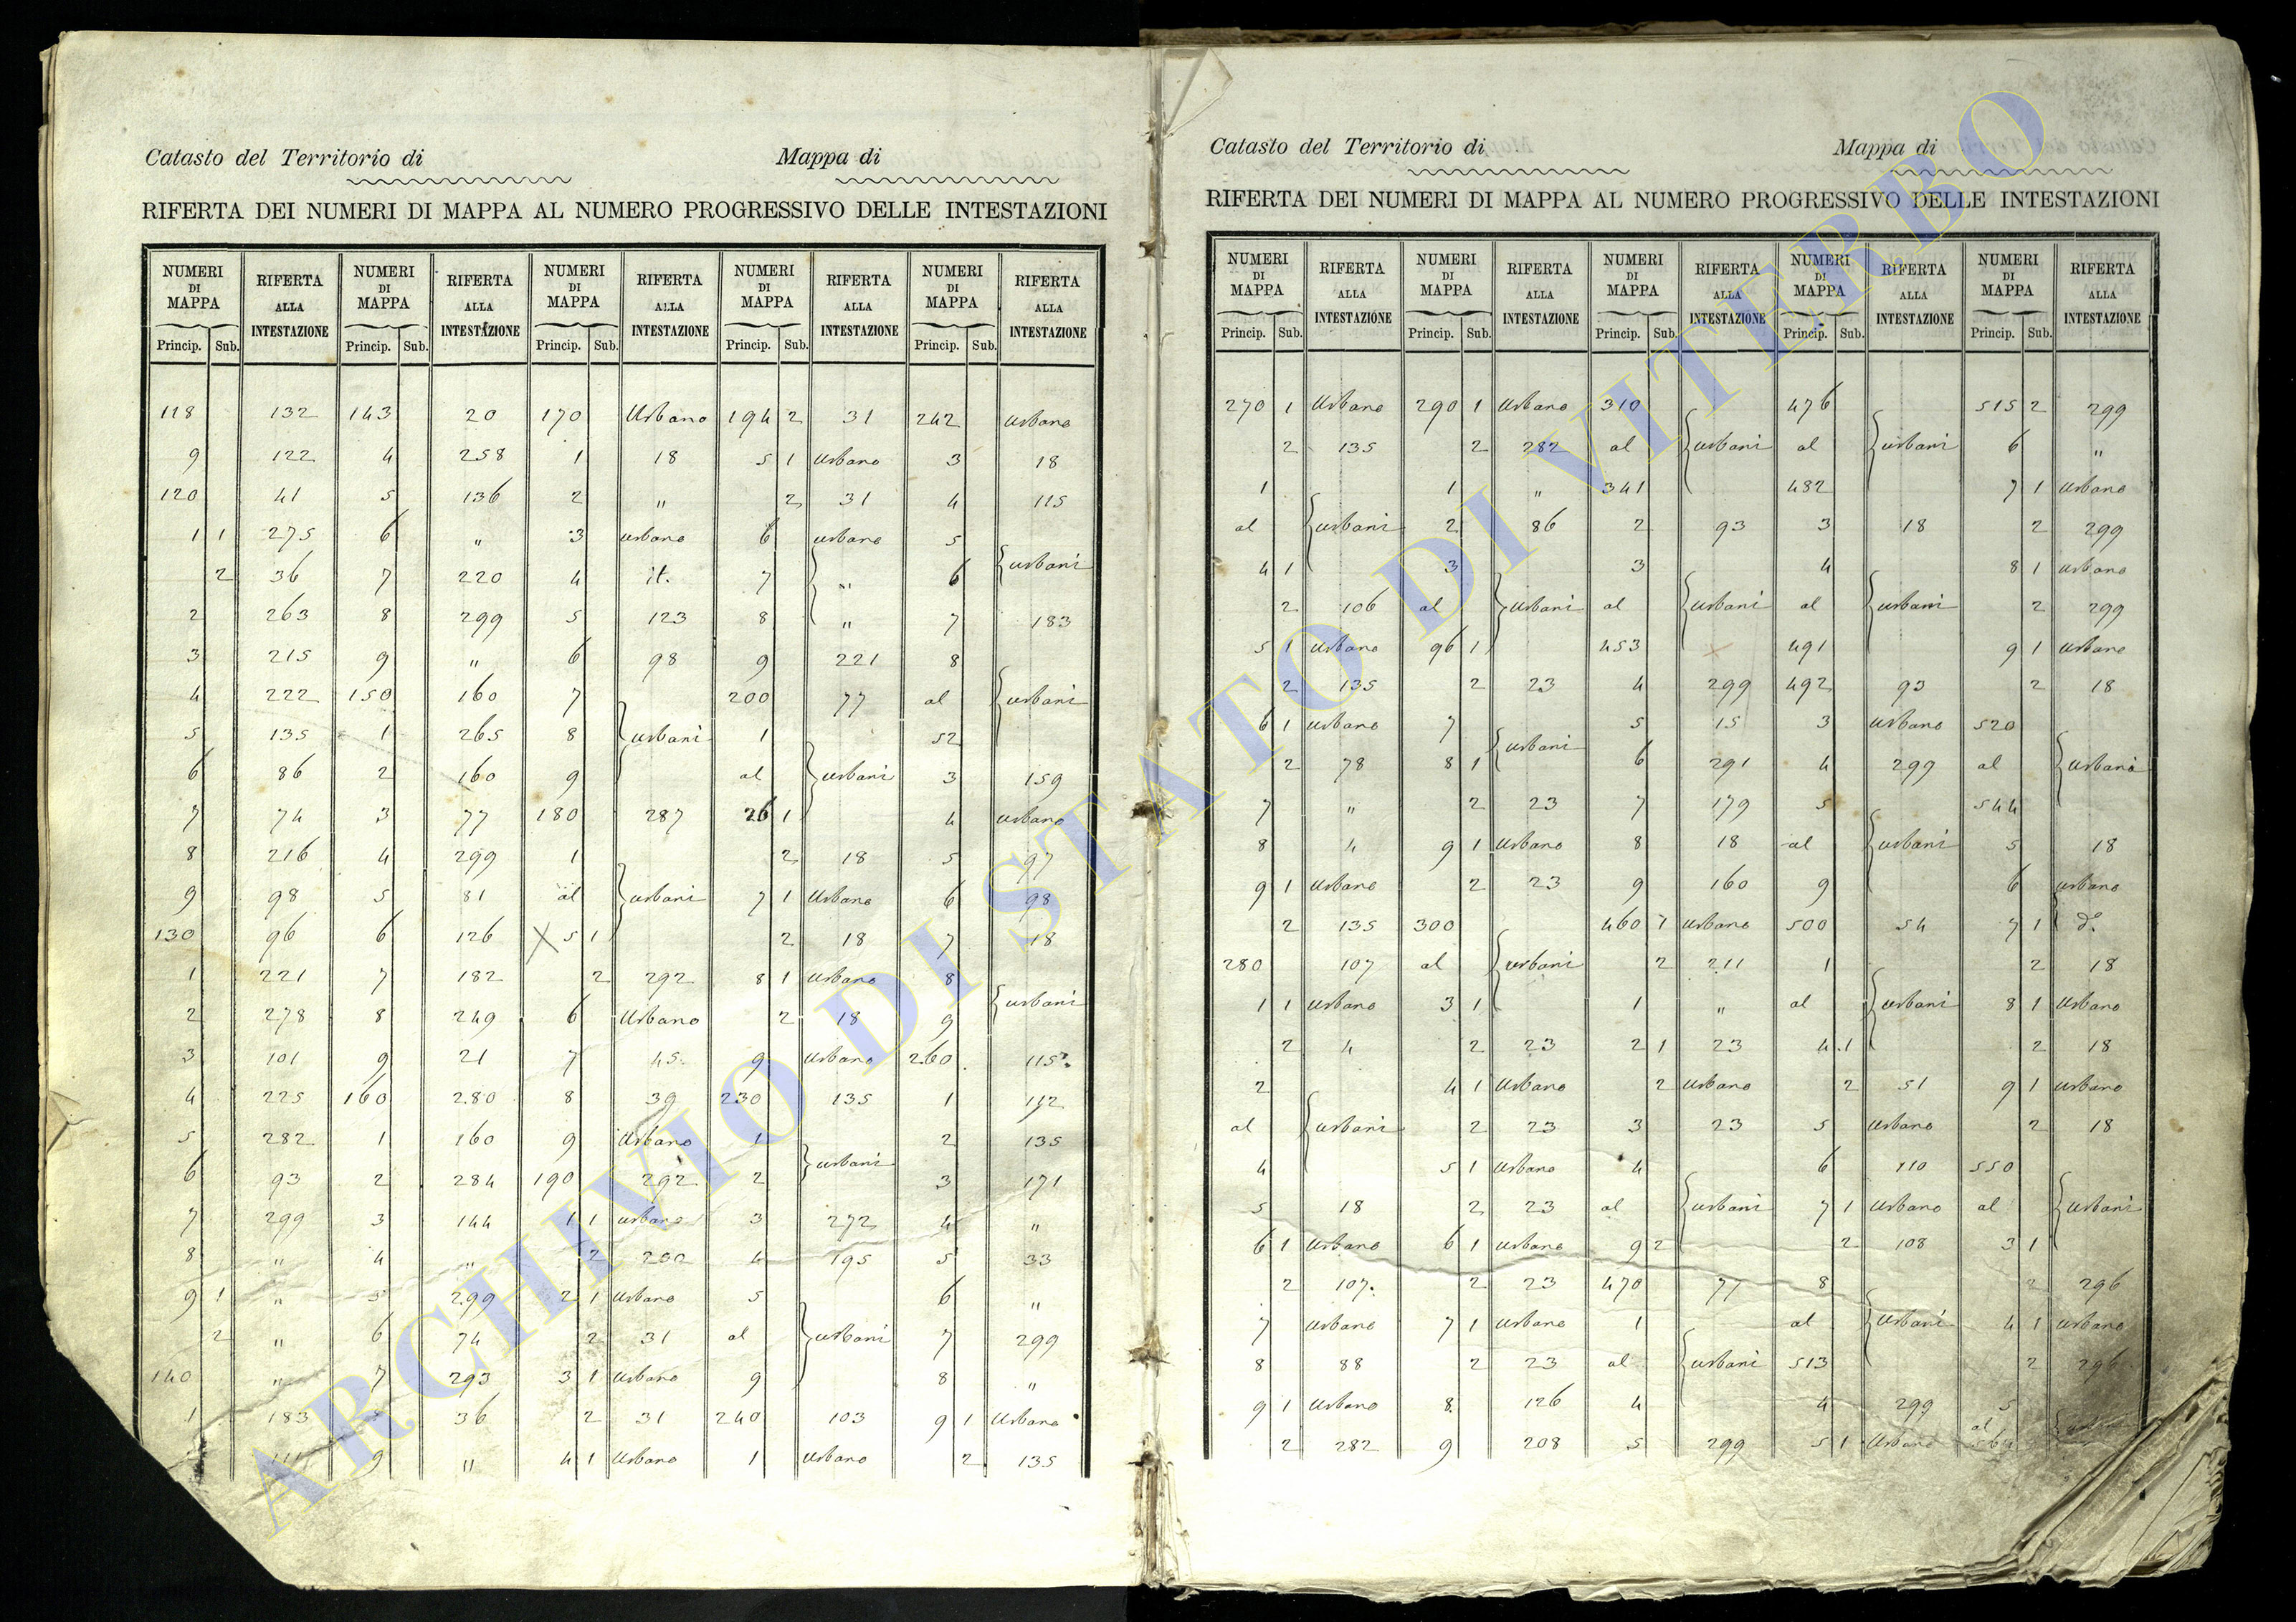 Catasto del Territorio di Mappa di
RIFERTA DEI NUMERI DI MAPPA AL NUMERO PROGRESSIVO DELLE INTESTAZIONI
NUMERI DI MAPPA RIFERTA ALLA INTESTAZIONE NUMERI DI MAPPA RIFERTA ALLA INTESTAZIONE NUMERI DI MAPPA RIFERTA ALLA INTESTAZIONE NUMERI DI MAPPA RIFERTA ALLA INTESTAZIONE NUMERI DI MAPPA RIFERTA ALLA INTESTAZIONE
Princip. Sub. Princip. Sub. Princip. Sub. Princip. Sub. Princip. Sub.
118 132 143 20 170 Urbano 194 2 31 242 urbano
9 122 4 258 1 18 5 1 urbano 3 18
120 41 5 136 2 " 2 31 4 115
1 1 275 6 " 3 urbano 6 urbano 5
2 36 7 220 4 it. 7 " 6 urbani
2 263 8 299 5 123 8 " 7 183
3 215 9 " 6 98 9 221 8
4 222 150 160 7 200 77 al urbani
5 135 1 265 8 urbani 1 52
6 86 2 160 9 al urbani 3 159
7 74 3 77 180 287 26 1 4 urbano
8 216 4 299 1 2 18 5 97
9 98 5 81 al urbani 7 1 Urbano 6 98
130 96 6 126 X 5 1 2 18 7 18
1 221 7 182 2 292 8 1 urbano 8
2 278 8 249 6 Urbano 2 18 9 urbani
3 101 9 21 7 45 9 urbano 260 115
4 225 160 280 8 39 230 135 1 112
5 282 1 160 9 Urbano 1 2 135
6 93 2 284 190 292 2 urbani 3 171
7 299 3 144 1 1 urbano 3 272 4 "
8 " 4 " 2 4 195 5 33
9 1 " 5 299 2 1 urbano 5 6 "
2 " 6 74 2 31 al urbani 7 299
140 " 7 293 3 1 Urbano 9 8 "
1 183 8 36 2 31 240 103 9 1 Urbano
9 " 4 1 Urbano 1 urbano 2 135
Catasto del Territorio di Mappa di
RIFERTA DEI NUMERI DI MAPPA AL NUMERO PROGRESSIVO DELLE INTESTAZIONI
NUMERI DI MAPPA RIFERTA ALLA INTESTAZIONE NUMERI DI MAPPA RIFERTA ALLA INTESTAZIONE NUMERI DI MAPPA RIFERTA ALLA INTESTAZIONE NUMERI DI MAPPA RIFERTA ALLA INTESTAZIONE NUMERI DI MAPPA RIFERTA ALLA INTESTAZIONE
Princip. Sub. Princip. Sub. Princip. Sub. Princip. Sub. Princip. Sub.
270 1 Urbano 290 1 Urbano 310 476 515 2 299
2 135 2 282 al urbani al urbani 6 "
1 1 " 341 482 7 1 urbano
al urbani 2 86 2 93 3 18 2 299
4 1 3 3 4 8 1 urbano
2 106 al urbani al urbani al urbani 2 299
5 1 urbano 96 1 453 491 9 1 urbano
2 135 2 23 4 299 492 93 2 18
6 1 urbano 7 5 15 3 urbano 520
2 78 8 1 urbani 6 291 4 299 al urbani
7 " 2 23 7 179 5 544
8 4 9 1 urbano 8 18 al urbani 5 18
9 1 urbano 2 23 9 160 9 6 urbano
2 135 300 460 1 urbano 500 54 7 1 d.°
280 107 al urbani 2 211 1 2 18
1 1 urbano 3 1 1 " al urbani 8 1 Urbano
2 4 2 23 2 1 23 4 1 2 18
2 4 1 Urbano 2 urbano 2 51 9 1 urbano
al urbani 2 23 3 23 5 urbano 2 18
4 5 1 Urbano 4 6 110 550
5 18 2 23 al urbani 7 1 urbano al urbani
6 1 Urbano 6 1 urbano 9 2 2 108 3 1
2 107. 2 23 470 77 8 2 296
7 urbano 7 1 urbano 1 al urbani 4 1 urbano
8 88 2 23 al urbani 513 2 296
9 1 Urbano 8 126 4 4 299 5
al
2 282 9 208 5 299 5 1 Urbano
ARCHIVIO DI STATO DI VITERBO